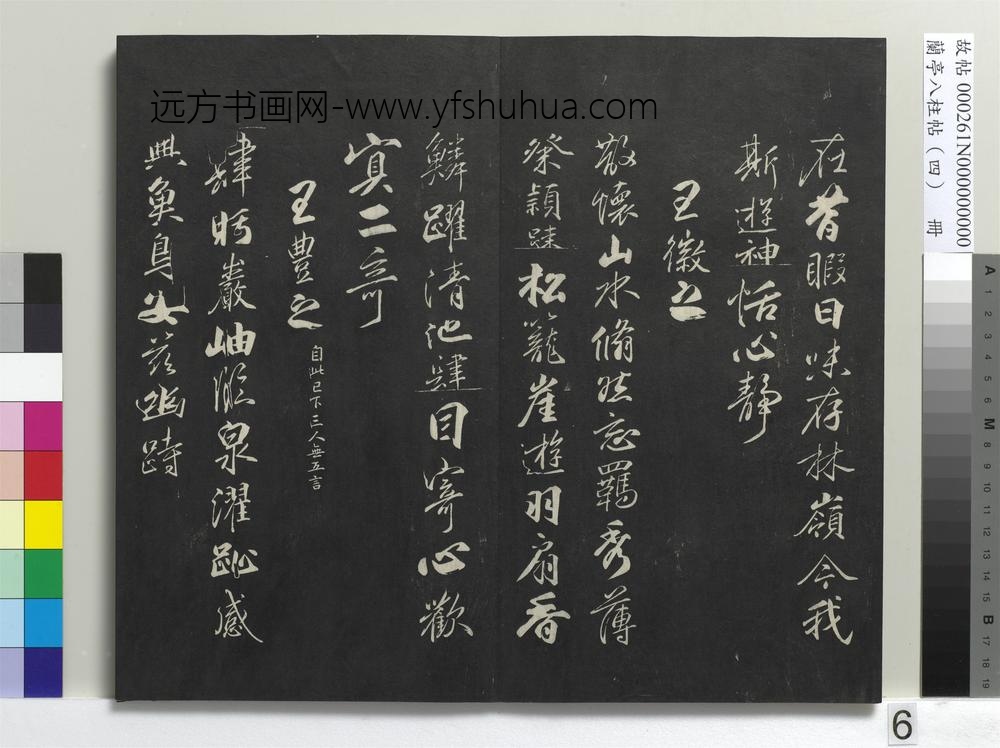 在昔暇日味存林嶺今我
斯遊神恬心靜
王徽之
散懷山水脩然忘羈秀薄
粲穎疎松籠崖遊羽扇香
鱗躍清池肆目寄心歡
寘二奇
王豊之
自此已下三人無五言
肆眄巖岫臨泉濯趾感
興魚鳥安茲幽跱
远方书画网-www.yfshuhua.com
故帖 000261N000000000
蘭亭八柱帖(四) 冊
A 1 2 3 4 5 6 M 8 9 10 11 12 13 14 15 B 17 18 19
6